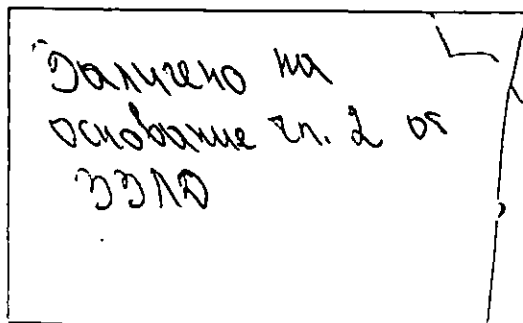 Заличено на
основание чл. 2 от
ЗЗЛД